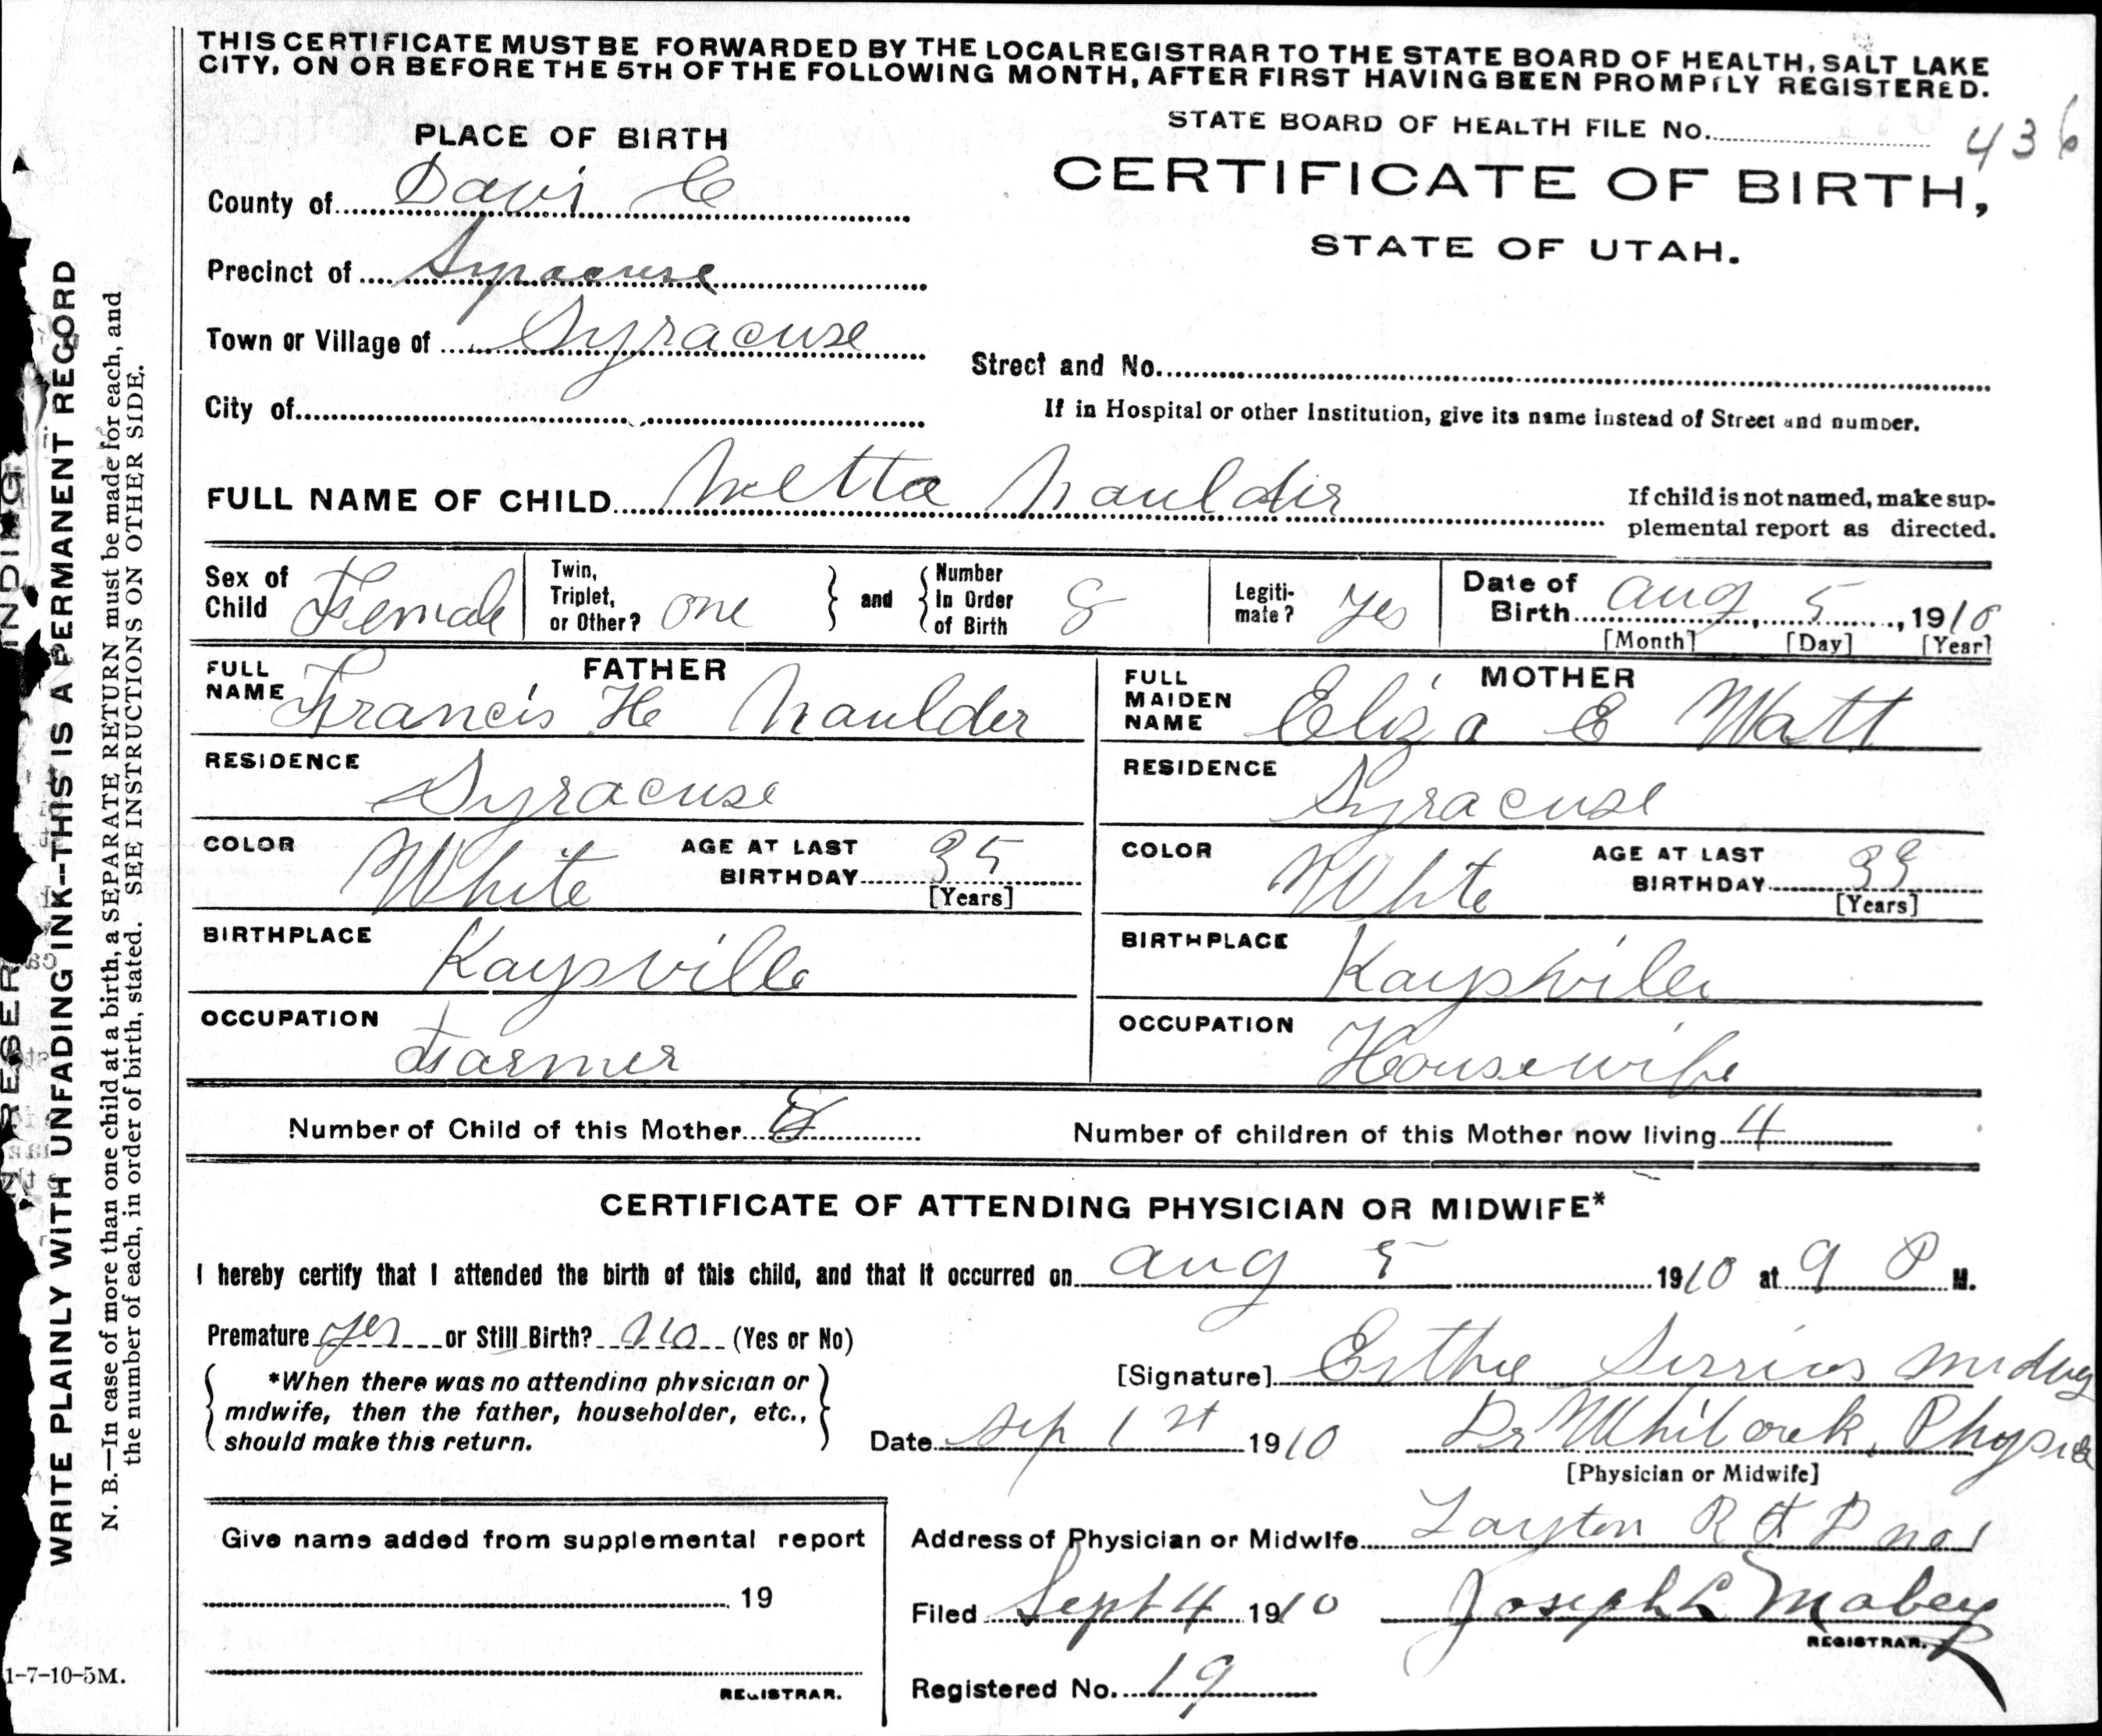 THIS CERTIFICATE MUST BE FORWARDED BY THE LOCAL REGISTRAR TO THE STATE BOARD OF HEALTH, SALT LAKE
CITY, ON OR BEFORE THE 5TH OF THE FOLLOWING MONTH, AFTER FIRST HAVING BEEN PROMPTLY REGISTERED.
STATE BOARD OF HEALTH FILE NO. 436
PLACE OF BIRTH
CERTIFICATE OF BIRTH,
STATE OF UTAH.
County of Davis Co
Precinct of Syracuse
Town or Village of Syracuse
Street and No.
City of
If in Hospital or other Institution, give its name instead of Street and number.
FULL NAME OF CHILD Netta Naulder
If child is not named, make sup-
plemental report as directed.
Sex of Child Female
Twin, Triplet, or Other? one
and Number In Order of Birth 8
Legiti-mate? yes
Date of Birth Aug 5, 1910
[Month] [Day] [Year]
FATHER
FULL NAME Francis H Naulder
MOTHER
FULL MAIDEN NAME Eliza E Watt
RESIDENCE Syracuse
RESIDENCE Syracuse
COLOR White AGE AT LAST BIRTHDAY 35 [Years]
COLOR White AGE AT LAST BIRTHDAY 33 [Years]
BIRTHPLACE Kaysville
BIRTHPLACE Kaysville
OCCUPATION Farmer
OCCUPATION Housewife
Number of Child of this Mother 8
Number of children of this Mother now living 4
CERTIFICATE OF ATTENDING PHYSICIAN OR MIDWIFE*
I hereby certify that I attended the birth of this child, and that it occurred on Aug 5 1910 at 9 P M.
Premature yes or Still Birth? no (Yes or No)
*When there was no attending physician or
midwife, then the father, householder, etc.,
should make this return.
[Signature]
Date Sep 1st 1910
Dr
[Physician or Midwife]
Give name added from supplemental report
19
REGISTRAR.
Address of Physician or Midwife Layton R F D no 1
Filed Sept 4 1910 Joseph L Mabey
REGISTRAR.
Registered No. 19
WRITE PLAINLY WITH UNFADING INK--THIS IS A PERMANENT RECORD
N. B.—In case of more than one child at a birth, a SEPARATE RETURN must be made for each, and
the number of each, in order of birth, stated. SEE INSTRUCTIONS ON OTHER SIDE.
1-7-10-5M.